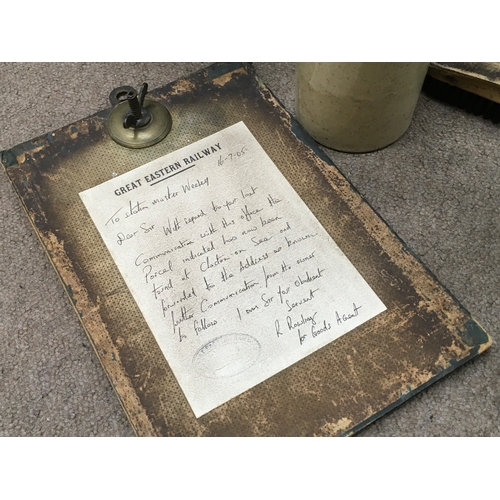 GREAT EASTERN RAILWAY
16-7-05
To station master Weeley
Dear Sir With regard to your last
Communication with this office the
Parcel indicated has now been
found at Clacton on Sea and
forwarded to the Address as known
further Communication from the owner
to follow I am Sir your obedient
Servant
R
for Goods Agent